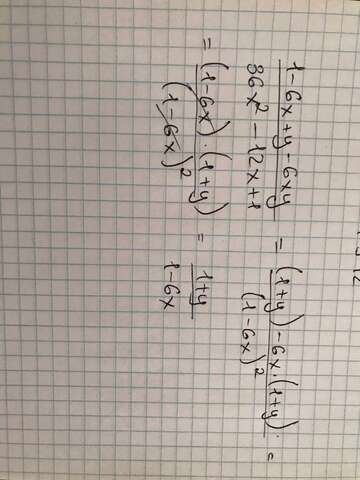 1-6x+y-6xy / 36x² - 12x+1 = (1+y)-6x·(1+y) / (1-6x)² =
= (1-6x)·(1+y) / (1-6x)² = 1+y / 1-6x